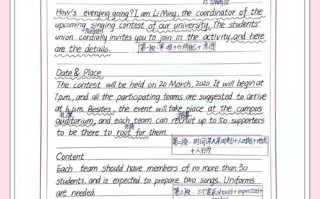 How's everying going? I am Li Ming, the coordinator of the
upcoming singing contest of our university. The students'
union cordially invites you to join in the activity, and here
are the details.
Date & Place
The contest will be held on 20 March, 2020. It will begin at
7 p.m., and all the participating teams are suggested to arrive
at 6 p.m. Besides, the event will take place at the campus
auditorium, and each team can recruit up to 50 supporters
to be there to root for them.
Content
Each team should have members of no more than 30
students, and is expected to prepare two songs. Uniforms
are needed.